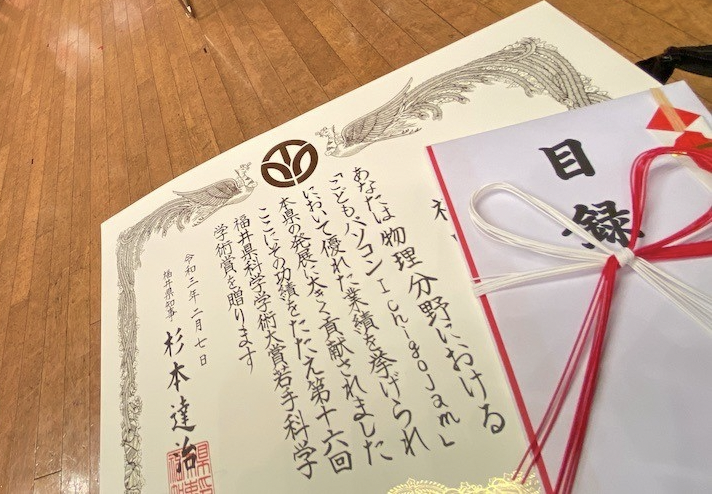 目録
あなたは物理分野における
「こどもパソコンIchigoJam」
において優れた業績を挙げられ
本県の発展に大きく貢献されました
ここにその功績をたたえ第十六回
福井県科学学術大賞若手科学
学術賞を贈ります
令和三年二月七日
福井県知事 杉本達治